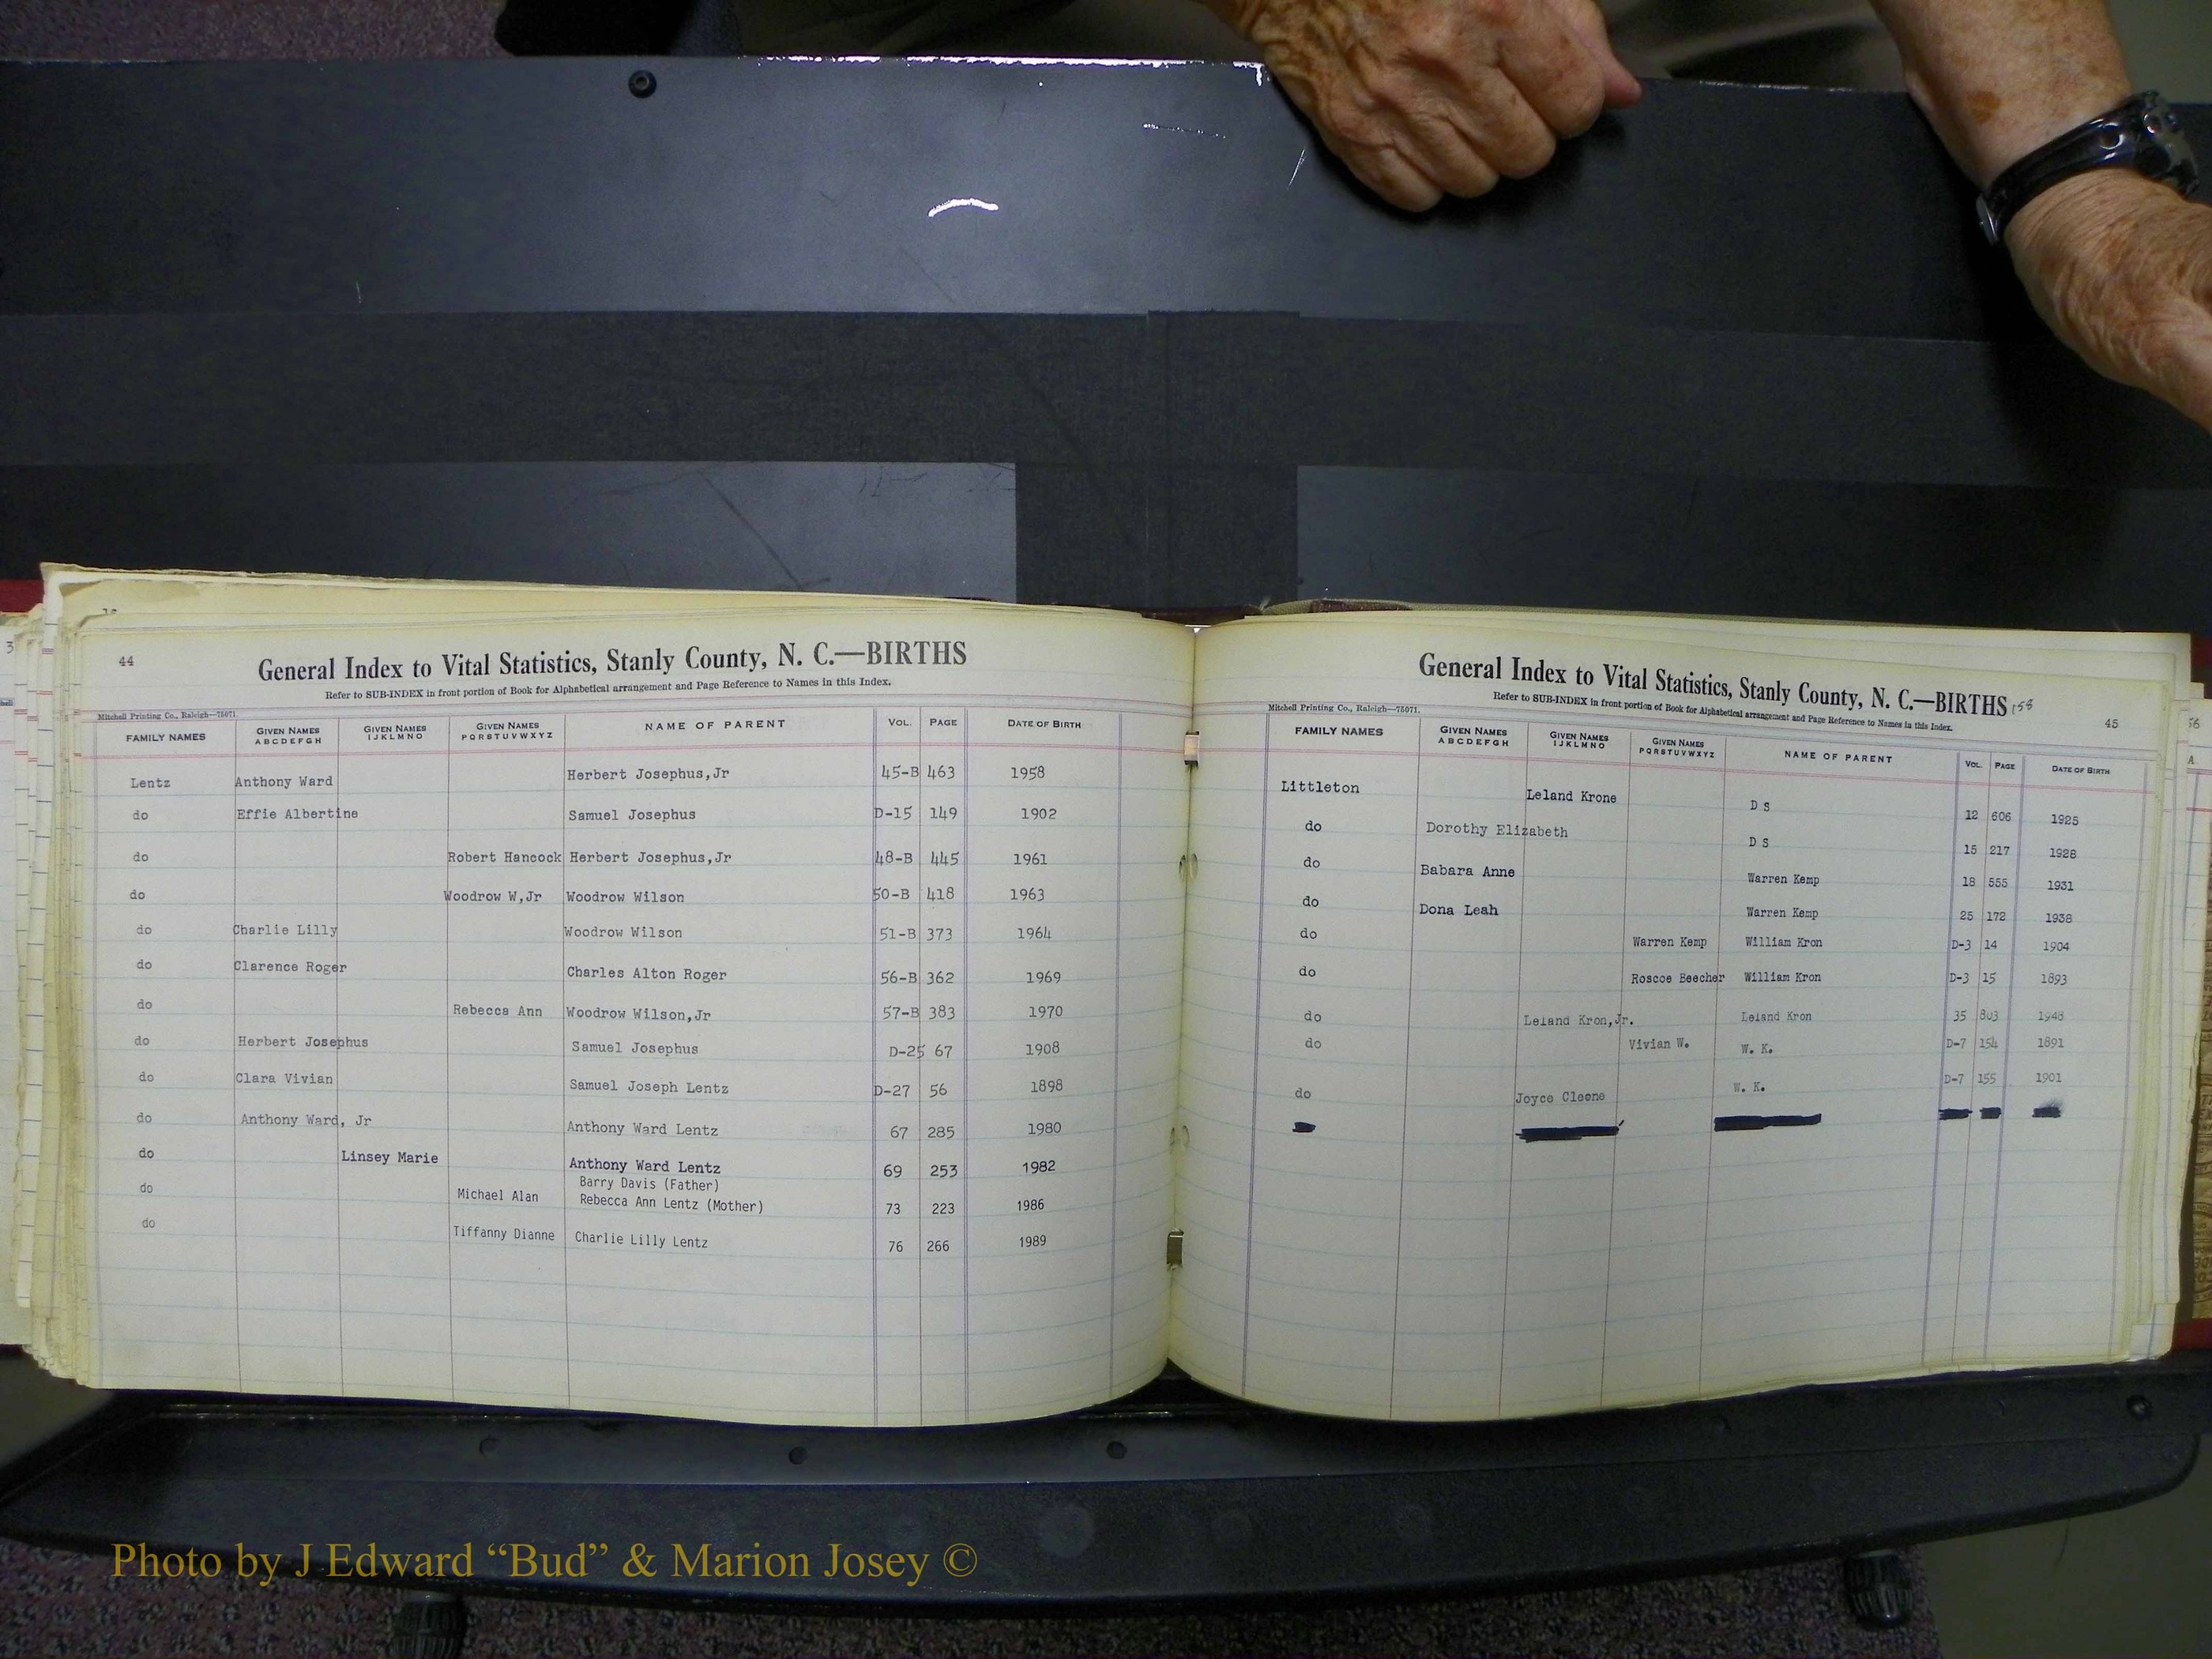 44
General Index to Vital Statistics, Stanly County, N. C.—BIRTHS
Refer to SUB-INDEX in front portion of Book for Alphabetical arrangement and Page Reference to Names in this Index.
Mitchell Printing Co., Raleigh—75071.
FAMILY NAMES GIVEN NAMES ABCDEFGH GIVEN NAMES IJKLMNO GIVEN NAMES PQRSTUVWXYZ NAME OF PARENT VOL. PAGE DATE OF BIRTH
Lentz Anthony Ward Herbert Josephus,Jr 45-B 463 1958
do Effie Albertine Samuel Josephus D-15 149 1902
do Robert Hancock Herbert Josephus,Jr 48-B 445 1961
do Woodrow W,Jr Woodrow Wilson 50-B 418 1963
do Charlie Lilly Woodrow Wilson 51-B 373 1964
do Clarence Roger Charles Alton Roger 56-B 362 1969
do Rebecca Ann Woodrow Wilson,Jr 57-B 383 1970
do Herbert Josephus Samuel Josephus D-25 67 1908
do Clara Vivian Samuel Joseph Lentz D-27 56 1898
do Anthony Ward, Jr Anthony Ward Lentz 67 285 1980
do Linsey Marie Anthony Ward Lentz 69 253 1982
Barry Davis (Father)
do Michael Alan Rebecca Ann Lentz (Mother) 73 223 1986
do Tiffanny Dianne Charlie Lilly Lentz 76 266 1989
General Index to Vital Statistics, Stanly County, N. C.—BIRTHS
Refer to SUB-INDEX in front portion of Book for Alphabetical arrangement and Page Reference to Names in this Index.
45
Mitchell Printing Co., Raleigh—75071.
FAMILY NAMES GIVEN NAMES ABCDEFGH GIVEN NAMES IJKLMNO GIVEN NAMES PQRSTUVWXYZ NAME OF PARENT VOL. PAGE DATE OF BIRTH
Littleton Leland Krone D S 12 606 1925
do Dorothy Elizabeth D S 15 217 1928
do Babara Anne Warren Kemp 18 555 1931
do Dona Leah Warren Kemp 25 172 1938
do Warren Kemp William Kron D-3 14 1904
do Roscoe Beecher William Kron D-3 15 1893
do Leland Kron,Jr. Leland Kron 35 803 1948
do Vivian W. W. K. D-7 154 1891
do Joyce Cleone W. K. D-7 155 1901
Photo by J Edward “Bud” & Marion Josey ©